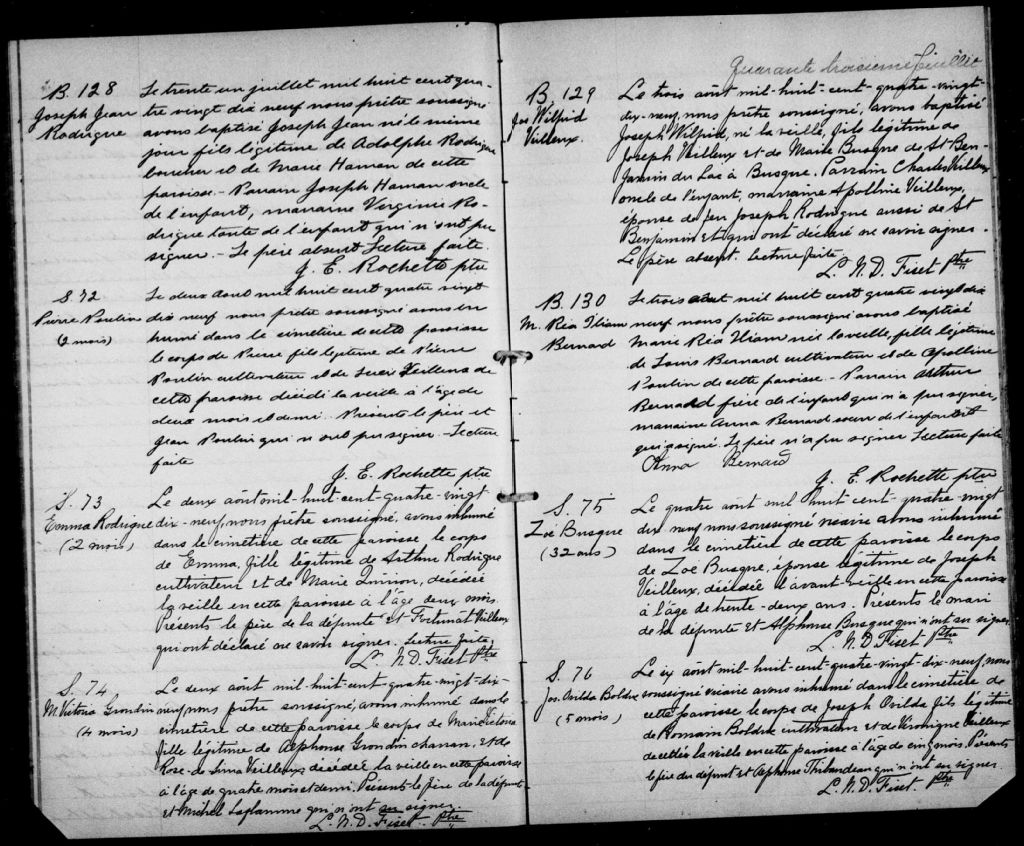 B. 128
Joseph Jean
Rodrigue
Le trente un juillet mil huit cent qua-
tre vingt dix neuf nous prêtre soussigné
avons baptisé Joseph Jean né le même
jour fils légitime de Adolphe Rodrigue
boucher et de Marie Haman de cette
paroisse - Parrain Joseph Haman oncle
de l'enfant, marraine Virginie Ro-
drigue tante de l'enfant qui n'ont pu
signer. - Le père absent Lecture faite.
J. E. Rochette ptre
S. 72
Pierre Poulin
(2 mois)
Le deux août mil huit cent quatre vingt
dix neuf nous prêtre soussigné avons in
humé dans le cimetière de cette paroisse
le corps de Pierre fils légitime de Pierre
Poulin cultivateur et de Veilleux de
cette paroisse décédé la veille à l'âge de
deux mois et demi. Présents le père et
Jean Poulin qui n'ont pu signer - Lecture
faite
J. E. Rochette ptre
S. 73
Emma Rodrigue
(2 mois)
Le deux août mil-huit-cent-quatre-vingt
dix-neuf, nous prêtre soussigné, avons inhumé
dans le cimetière de cette paroisse le corps
de Emma, fille légitime de Arthur Rodrigue
cultivateur et de Marie Quirion, décédée
la veille en cette paroisse à l'âge deux mois.
Présents le père de la défunte et Fortunat Veilleux
qui ont déclaré ne savoir signer. Lecture faite
L. N. D. Fiset Ptre
S. 74
M. Victoria Grondin
(4 mois)
Le deux août mil-huit-cent-quatre-vingt-dix-
neuf, nous prêtre soussigné, avons inhumé dans le
cimetière de cette paroisse, le corps de Marie Victoria
fille légitime de Alphonse Grondin charron, et de
Rose-de-Lima Veilleux, décédée la veille en cette paroisse
à l'âge de quatre mois et demi. Présents le père de la défunte
et Michel Laflamme qui n'ont su signer.
L. N. D. Fiset Ptre
Quarante troisième feuillet
B. 129
Jos Wilfrid
Veilleux.
Le trois août mil-huit-cent-quatre-vingt-
dix-neuf, nous prêtre soussigné, avons baptisé
Joseph Wilfrid, né la veille, fils légitime de
Joseph Veilleux et de Marie Busque de St Ben-
jamin du Lac à Busque. Parrain Charles Veilleux
oncle de l'enfant, marraine Apolline Veilleux,
épouse de feu Joseph Rodrigue aussi de St
Benjamin et qui ont déclaré ne savoir signer.
Le père absent. Lecture faite.
L. N. D. Fiset Ptre
B. 130
M. Réa Iliam
Bernard
Le trois août mil huit cent quatre vingt dix
neuf nous prêtre soussigné avons baptisé
Marie Réa Iliam née la veille, fille légitime
de Louis Bernard cultivateur et de Apolline
Poulin de cette paroisse - Parrain Arthur
Bernard frère de l'enfant qui n'a pu signer,
marraine Anna Bernard soeur de l'enfant et
qui a signé. Le père n'a pu signer Lecture faite
Anna Bernard
J. E. Rochette ptre
S. 75
Zoé Busque
(32 ans)
Le quatre août mil huit-cent-quatre vingt
dix neuf nous soussigné vicaire avons inhumé
dans le cimetière de cette paroisse le corps
de Zoé Busque, épouse légitime de Joseph
Veilleux, décédée l'avant veille en cette paroisse
à l'âge de trente-deux ans. Présents le mari
de la défunte et Alphonse Busque qui n'ont su signer.
L. N. D. Fiset Ptre
S. 76
Jos. Ovilda Bolduc
(5 mois)
Le six août mil-huit-cent-quatre-vingt-dix-neuf, nous
soussigné vicaire avons inhumé dans le cimetière de
cette paroisse le corps de Joseph Ovilda fils légitime
de Romain Bolduc cultivateur et de Véronique Veilleux
décédé la veille en cette paroisse à l'âge de cinq mois. Présents
le père du défunt et Alphonse Thibaudeau qui n'ont su signer
L. N. D. Fiset Ptre